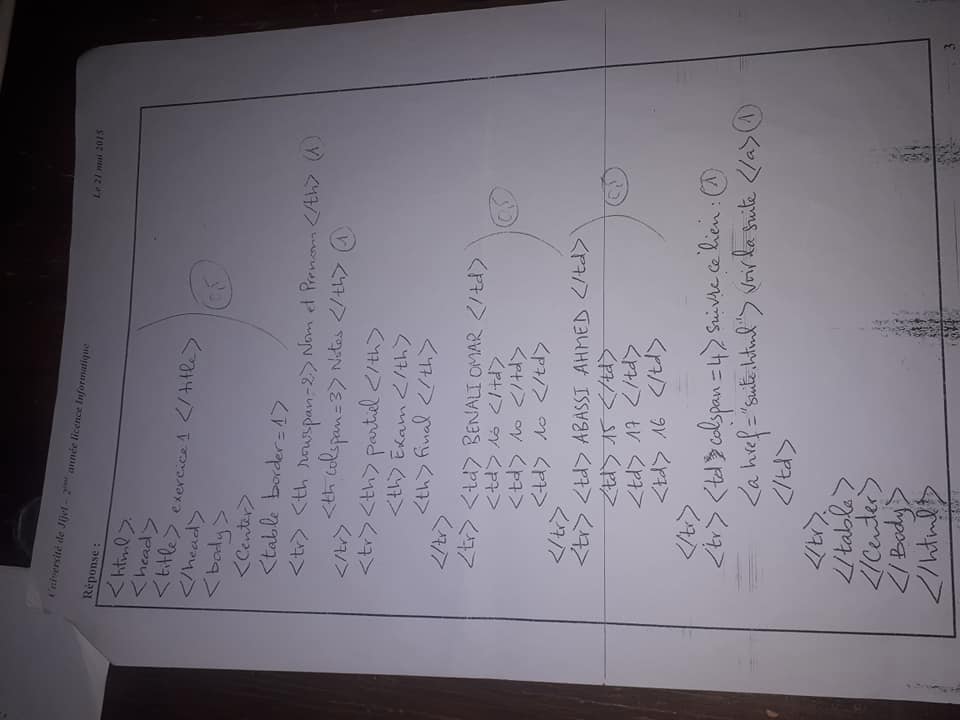 Université de Jijel – 2ème année licence Informatique
Le 21 mai 2015
Réponse :
<html>.
<head>
<title> exercice 1 </title>
</head>
<body>
0,5
<Center>
<table border=1>
<tr> <th rowspan=2> Nom et Prenom </th> 1
<th colspan=3> Notes </th> 1
</tr>
<tr> <th> partiel </th>
<th> Exam </th>
<th> final </th>
</tr>
<tr> <td> BENALI OMAR </td>
<td> 10 </td>
0,5
<td> 10 </td>
<td> 10 </td>
</tr>
<tr> <td> ABASSI AHMED </td>
<td> 15 </td>
0,5
<td> 17 </td>
<td> 16 </td>
</tr>
<tr> <td colspan=4> Suivre ce lien : 1
<a href="suite.html"> voir la suite </a> 1
</td>
</tr>.
</table>
</Center>
</Body>
</html>
3